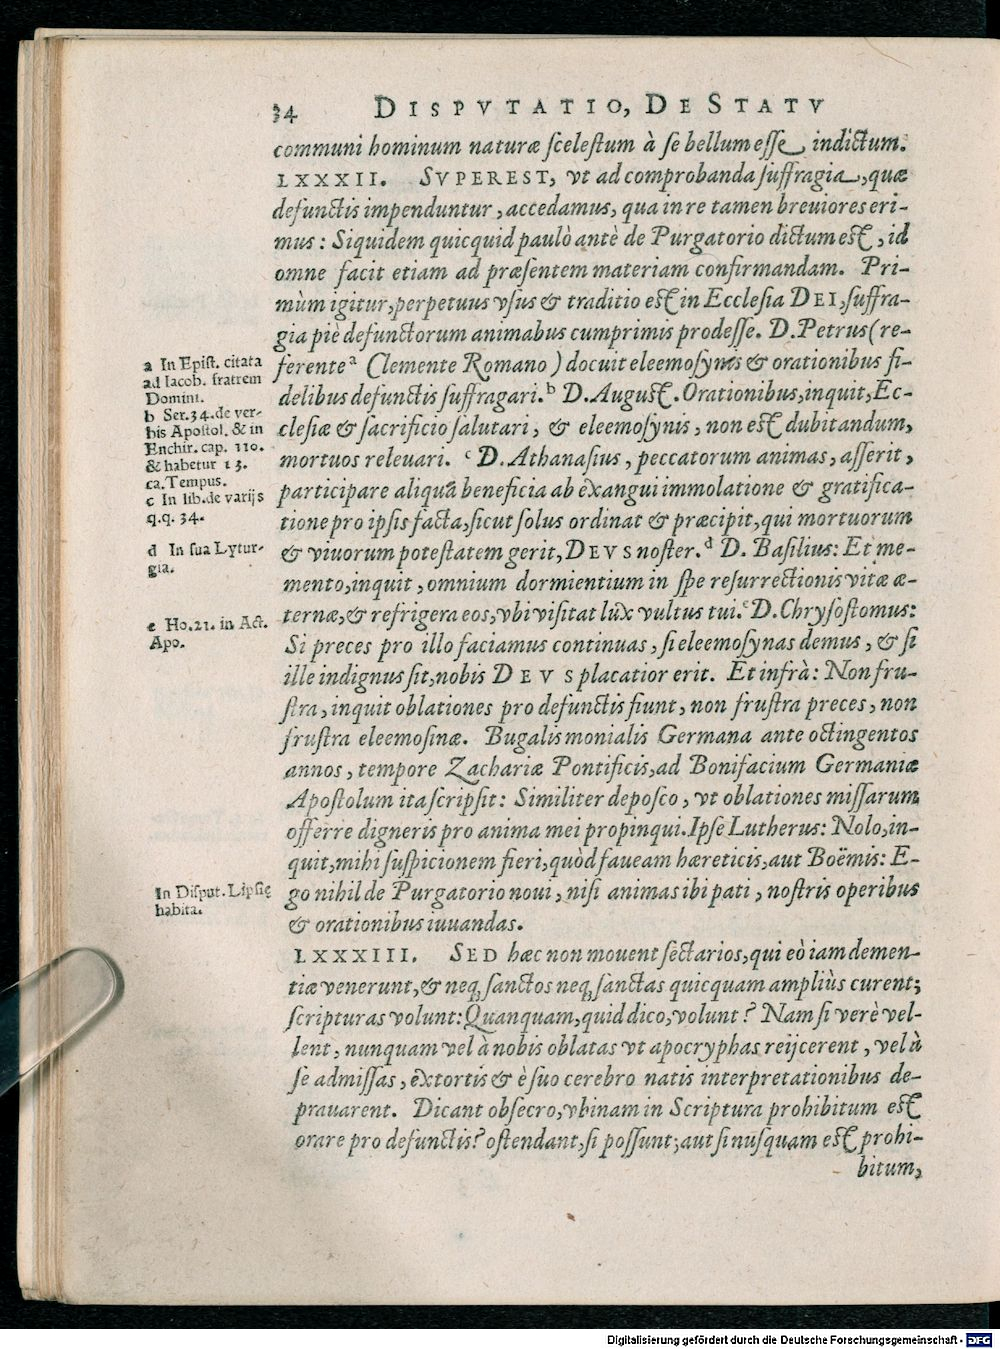 34 DISPVTATIO, DE STATV
communi hominum naturæ scelestum à se bellum esse indictum.
LXXXII. SVPEREST, vt ad comprobanda suffragia, quæ
defunctis impenduntur, accedamus, qua in re tamen breuiores eri-
mus: Siquidem quicquid paulò antè de Purgatorio dictum est, id
omne facit etiam ad præsentem materiam confirmandam. Pri-
mùm igitur, perpetuus vsus & traditio est in Ecclesia DEI, suffra-
gia piè defunctorum animabus cumprimis prodesse. D. Petrus (re-
ferente a Clemente Romano) docuit eleemosynis & orationibus fi-
delibus defunctis suffragari. b D. August. Orationibus, inquit, Ec-
clesiæ & sacrificio salutari, & eleemosynis, non est dubitandum,
mortuos releuari. c D. Athanasius, peccatorum animas, asserit,
participare aliquã beneficia ab exangui immolatione & gratifica-
tione pro ipsis facta, sicut solus ordinat & præcipit, qui mortuorum
& viuorum potestatem gerit, DEVS noster. d D. Basilius: Et me-
mento, inquit, omnium dormientium in spe resurrectionis vitæ æ-
ternæ, & refrigera eos, vbi visitat lux vultus tui. e D. Chrysostomus:
Si preces pro illo faciamus continuas, si eleemosynas demus, & si
ille indignus sit, nobis DEVS placatior erit. Et infrà: Non fru-
stra, inquit oblationes pro defunctis fiunt, non frustra preces, non
frustra eleemosinæ. Bugalis monialis Germana ante octingentos
annos, tempore Zachariæ Pontificis, ad Bonifacium Germaniæ
Apostolum ita scripsit: Similiter deposco, vt oblationes missarum
offerre digneris pro anima mei propinqui. Ipse Lutherus: Nolo, in-
quit, mihi suspicionem fieri, quòd faueam hæreticis, aut Boëmis: E-
go nihil de Purgatorio noui, nisi animas ibi pati, nostris operibus
& orationibus iuuandas.
LXXXIII. SED hæc non mouent sectarios, qui eò iam demen-
tiæ venerunt, & neq; sanctos neq; sanctas quicquam ampliùs curent;
scripturas volunt: Quanquam, quid dico, volunt? Nam si verè vel-
lent, nunquam vel à nobis oblatas vt apocryphas reijcerent, vel à
se admissas, extortis & è suo cerebro natis interpretationibus de-
prauarent. Dicant obsecro, vbinam in Scriptura prohibitum est
orare pro defunctis? ostendant, si possunt; aut si nusquam est prohi-
bitum,
a In Epist. citata
ad Iacob. fratrem
Domini.
b Ser. 34. de ver-
bis Apostol. & in
Enchir. cap. 110.
& habetur 13.
ca. Tempus.
c In lib. de varijs
q.q. 34.
d In sua Lytur-
gia.
e Ho. 21. in Act.
Apo.
In Disput. Lipsię
habita.
Digitalisierung gefördert durch die Deutsche Forschungsgemeinschaft - DFG